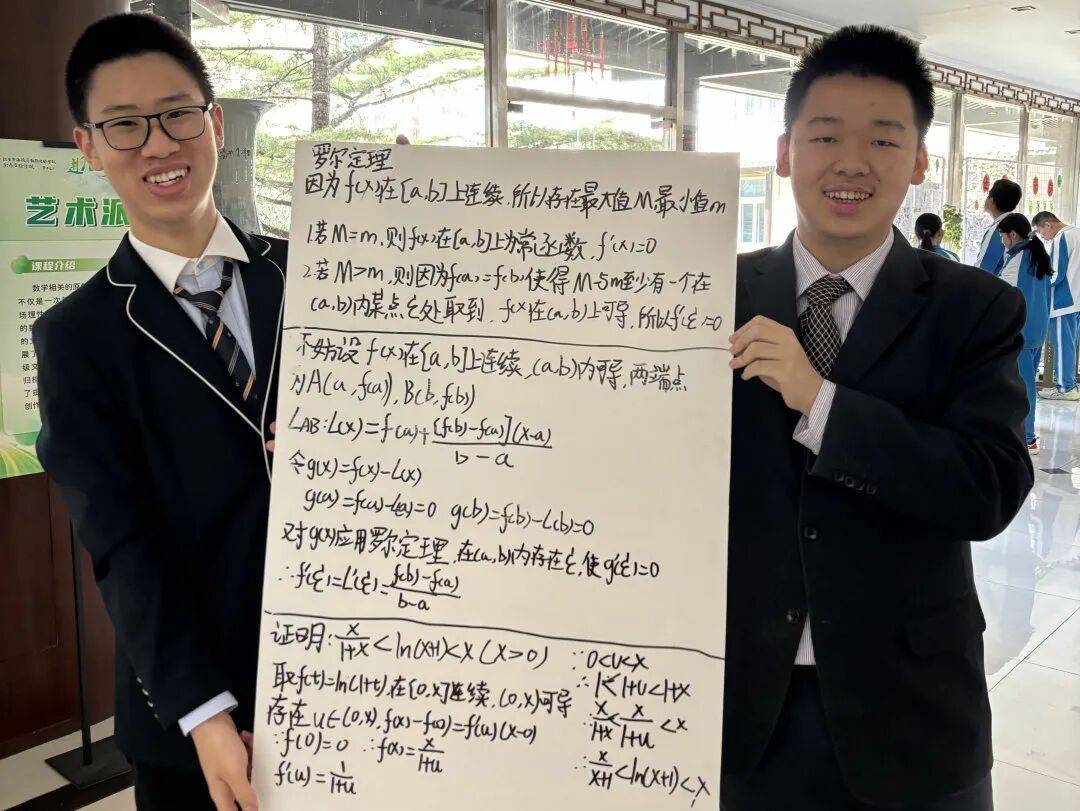 艺术派
课程介绍
数学相关的原
不仅是一次
场理性
的数
的文
展了
级文
归标
了
创作
罗尔定理
因为f(x)在[a,b]上连续,所以存在最大值M最小值m
1.若M=m,则f(x)在[a,b]上为常函数,f'(x)=0
2.若M>m,则因为f(a)=f(b)使得M与m至少有一个在
(a,b)内某点ξ处取到,f(x)在(a,b)上可导,所以f'(ξ)=0
不妨设f(x)在[a,b]上连续,(a,b)内可导,两端点
为A(a,f(a)),B(b,f(b))
L_AB:L(x)=f(a)+[f(b)-f(a)](x-a)/b-a
令g(x)=f(x)-L(x)
g(a)=f(a)-L(a)=0 g(b)=f(b)-L(b)=0
对g(x)应用罗尔定理,在(a,b)内存在ξ,使g'(ξ)=0
∴f'(ξ)=L'(ξ)=f(b)-f(a)/b-a
证明:x/1+x<ln(x+1)<x(x>0)
取f(t)=ln(1+t),在[0,x]连续,(0,x)可导
存在u∈(0,x),f(x)-f(0)=f'(u)(x-0)
∵f(0)=0 ∴f(x)=x/1+u
f'(u)=1/1+u
∵0<u<x
∴1<1+u<1+x
∴x/1+x<x/1+u<x
∴x/x+1<ln(x+1)<x